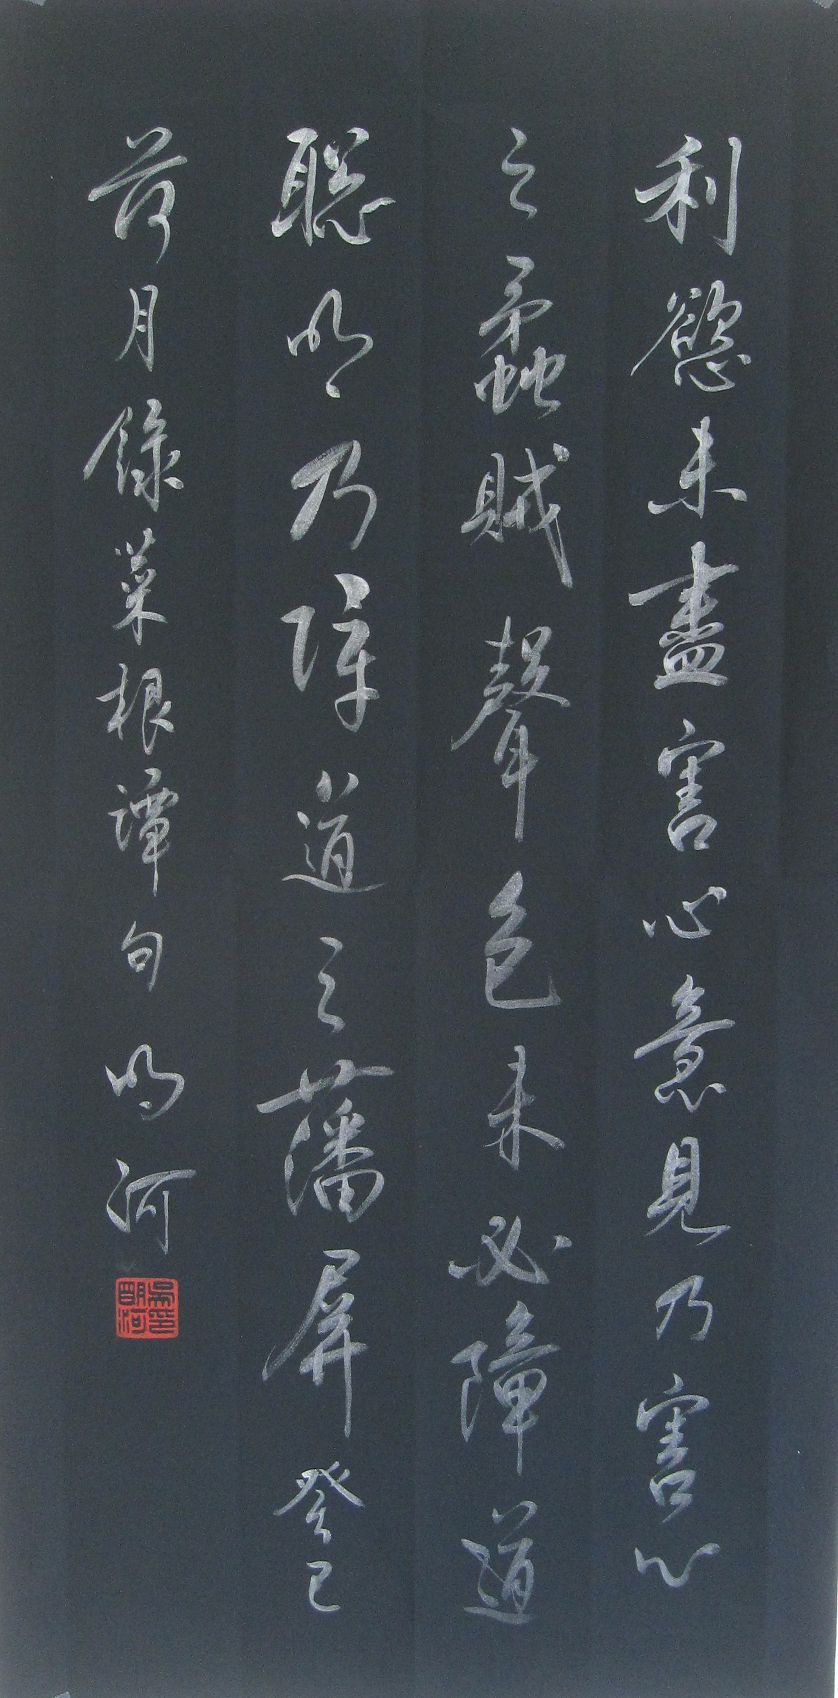 利慾未盡害心意見乃害心
之蟊賊聲色未必障道
聰明乃障道之藩屏癸巳
荷月錄菜根譚句明河
吳印明河